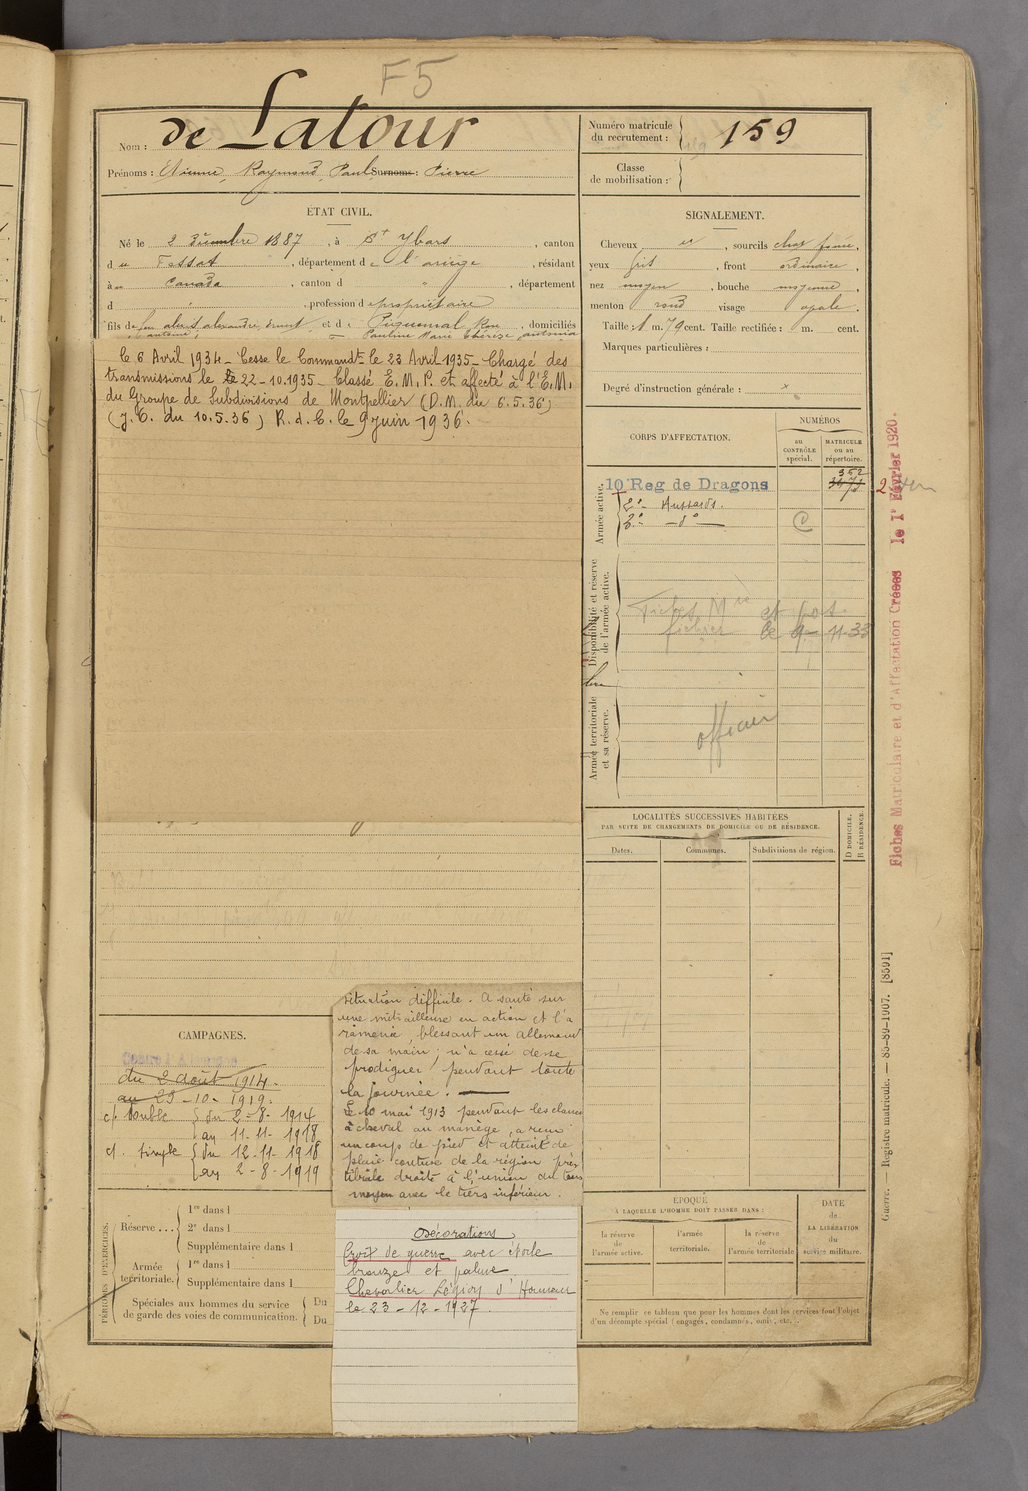 F5
Nom : de Latour
Prénoms : Etienne, Raymond, Paul Surnoms : Pierre
Numéro matricule
du recrutement : 159
Classe
de mobilisation :
ÉTAT CIVIL.
Né le 2 Décembre 1887, à St Ybars, canton
du Fossat, département de l'ariège, résidant
à au Canada, canton d " , département
d " , profession de propriétaire
fils de feu alexis alexandre, ernest et de Piquemal Rou , domiciliés
antoine, Pauline Marie Thérèse, antonia
le 6 Avril 1934 - Cesse le Commandt le 23 Avril 1935 - Chargé des
transmissions le 22-10-1935 - Classé E.M.P. et affecté à l'E.M.
du Groupe de Subdivisions de Montpellier (D.M. du 6.5.36)
(J.O. du 10.5.36) R.d.C. le 9 juin 1936.
SIGNALEMENT.
Cheveux et , sourcils chat foncé,
yeux gris , front ordinaire ,
nez moyen , bouche moyenne ,
menton rond visage ovale .
Taille : 1 m. 79 cent. Taille rectifiée : m. cent.
Marques particulières :
Degré d'instruction générale : x
CORPS D'AFFECTATION.
NUMÉROS
au
CONTRÔLE
spécial.
MATRICULE
ou au
répertoire.
Armée active.
10e Reg de Dragons
352
2e Hussards.
2e - do -
C
Disponibilité et réserve
de l'armée active.
Fiches Mle et pos.
fichier le 9-11-33
Armée territoriale
et sa réserve.
officier
Fiches Matriculaire et d'Affectation Créées le 1r Février 1920.
LOCALITÉS SUCCESSIVES HABITÉES
PAR SUITE DE CHANGEMENTS DE DOMICILE OU DE RÉSIDENCE.
Dates.
Communes.
Subdivisions de région.
D DOMICILE.
R RÉSIDENCE.
CAMPAGNES.
Contre l'Allemagne
du 2 août 1914.
au 23-10-1919.
c/ double { du 2-8-1914
au 11-11-1918
c/. simple { du 12-11-1918
au 2-8-1919
situation difficile. A sauté sur
une mitrailleuse en action et l'a
ramenée, blessant un allemand
de sa main ; n'a cessé de se
prodiguer pendant toute
la journée.
Le 10 mai 1913 pendant les classes
à cheval au manège, a reçu
un coup de pied et atteint de
plaie contuse de la région pré
tibiale droite à l'union du tiers
moyen avec le tiers inférieur.
Décorations
Croix de guerre avec étoile
bronze et palme
Chevalier Légion d'Honneur
le 23-12-1927.
PÉRIODES D'EXERCICES.
Réserve ...
1re dans l
2e dans l
Supplémentaire dans l
Armée
territoriale.
1re dans l
Supplémentaire dans l
Spéciales aux hommes du service
de garde des voies de communication.
Du
Du
ÉPOQUE
À LAQUELLE L'HOMME DOIT PASSER DANS :
la réserve
de
l'armée active.
l'armée
territoriale.
la réserve
de
l'armée territoriale
DATE
de
LA LIBÉRATION
du
service militaire.
Ne remplir ce tableau que pour les hommes dont les services font l'objet
d'un décompte spécial (engagés, condamnés, omis, etc.).
Guerre. — Registre matricule. — 85-89-1907. [8591]